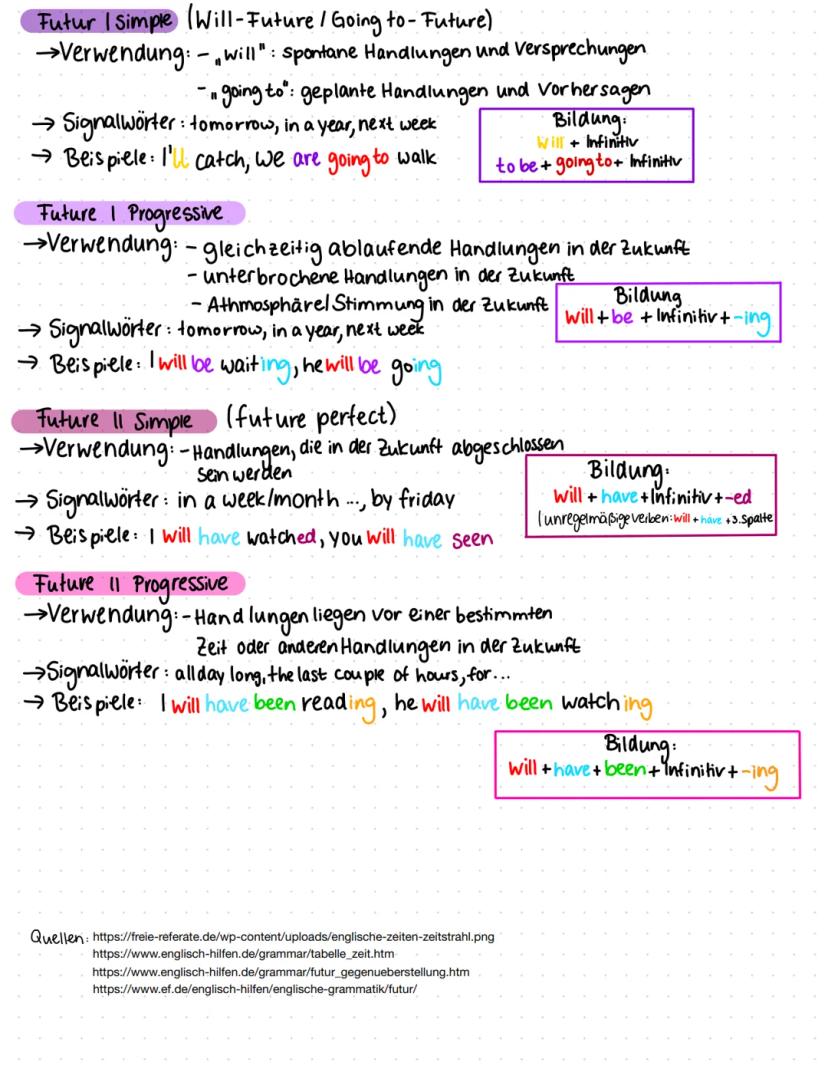 Futur I Simple (Will-Future / Going to-Future)
→ Verwendung: - „will": spontane Handlungen und Versprechungen
- „going to": geplante Handlungen und Vorhersagen
→ Signalwörter: tomorrow, in a year, next week
→ Beispiele: I'll catch, we are going to walk
Bildung:
will + Infinitiv
to be + going to + Infinitiv
Future I Progressive
→ Verwendung: - gleichzeitig ablaufende Handlungen in der Zukunft
- unterbrochene Handlungen in der Zukunft
- Athmosphäre/Stimmung in der Zukunft
→ Signalwörter: tomorrow, in a year, next week
→ Beispiele: I will be waiting, he will be going
Bildung
will + be + Infinitiv + -ing
Future II Simple (future perfect)
→ Verwendung: - Handlungen, die in der Zukunft abgeschlossen
sein werden
→ Signalwörter: in a week/month ..., by friday
→ Beispiele: I will have watched, you will have seen
Bildung:
will + have + Infinitiv + -ed
(unregelmäßige Verben: will + have + 3. Spalte
Future II Progressive
→ Verwendung: - Handlungen liegen vor einer bestimmten
Zeit oder anderen Handlungen in der Zukunft
→ Signalwörter: all day long, the last couple of hours, for...
→ Beispiele: I will have been reading, he will have been watching
Bildung:
will + have + been + Infinitiv + -ing
Quellen: https://freie-referate.de/wp-content/uploads/englische-zeiten-zeitstrahl.png
https://www.englisch-hilfen.de/grammar/tabelle_zeit.htm
https://www.englisch-hilfen.de/grammar/futur_gegenueberstellung.htm
https://www.ef.de/englisch-hilfen/englische-grammatik/futur/